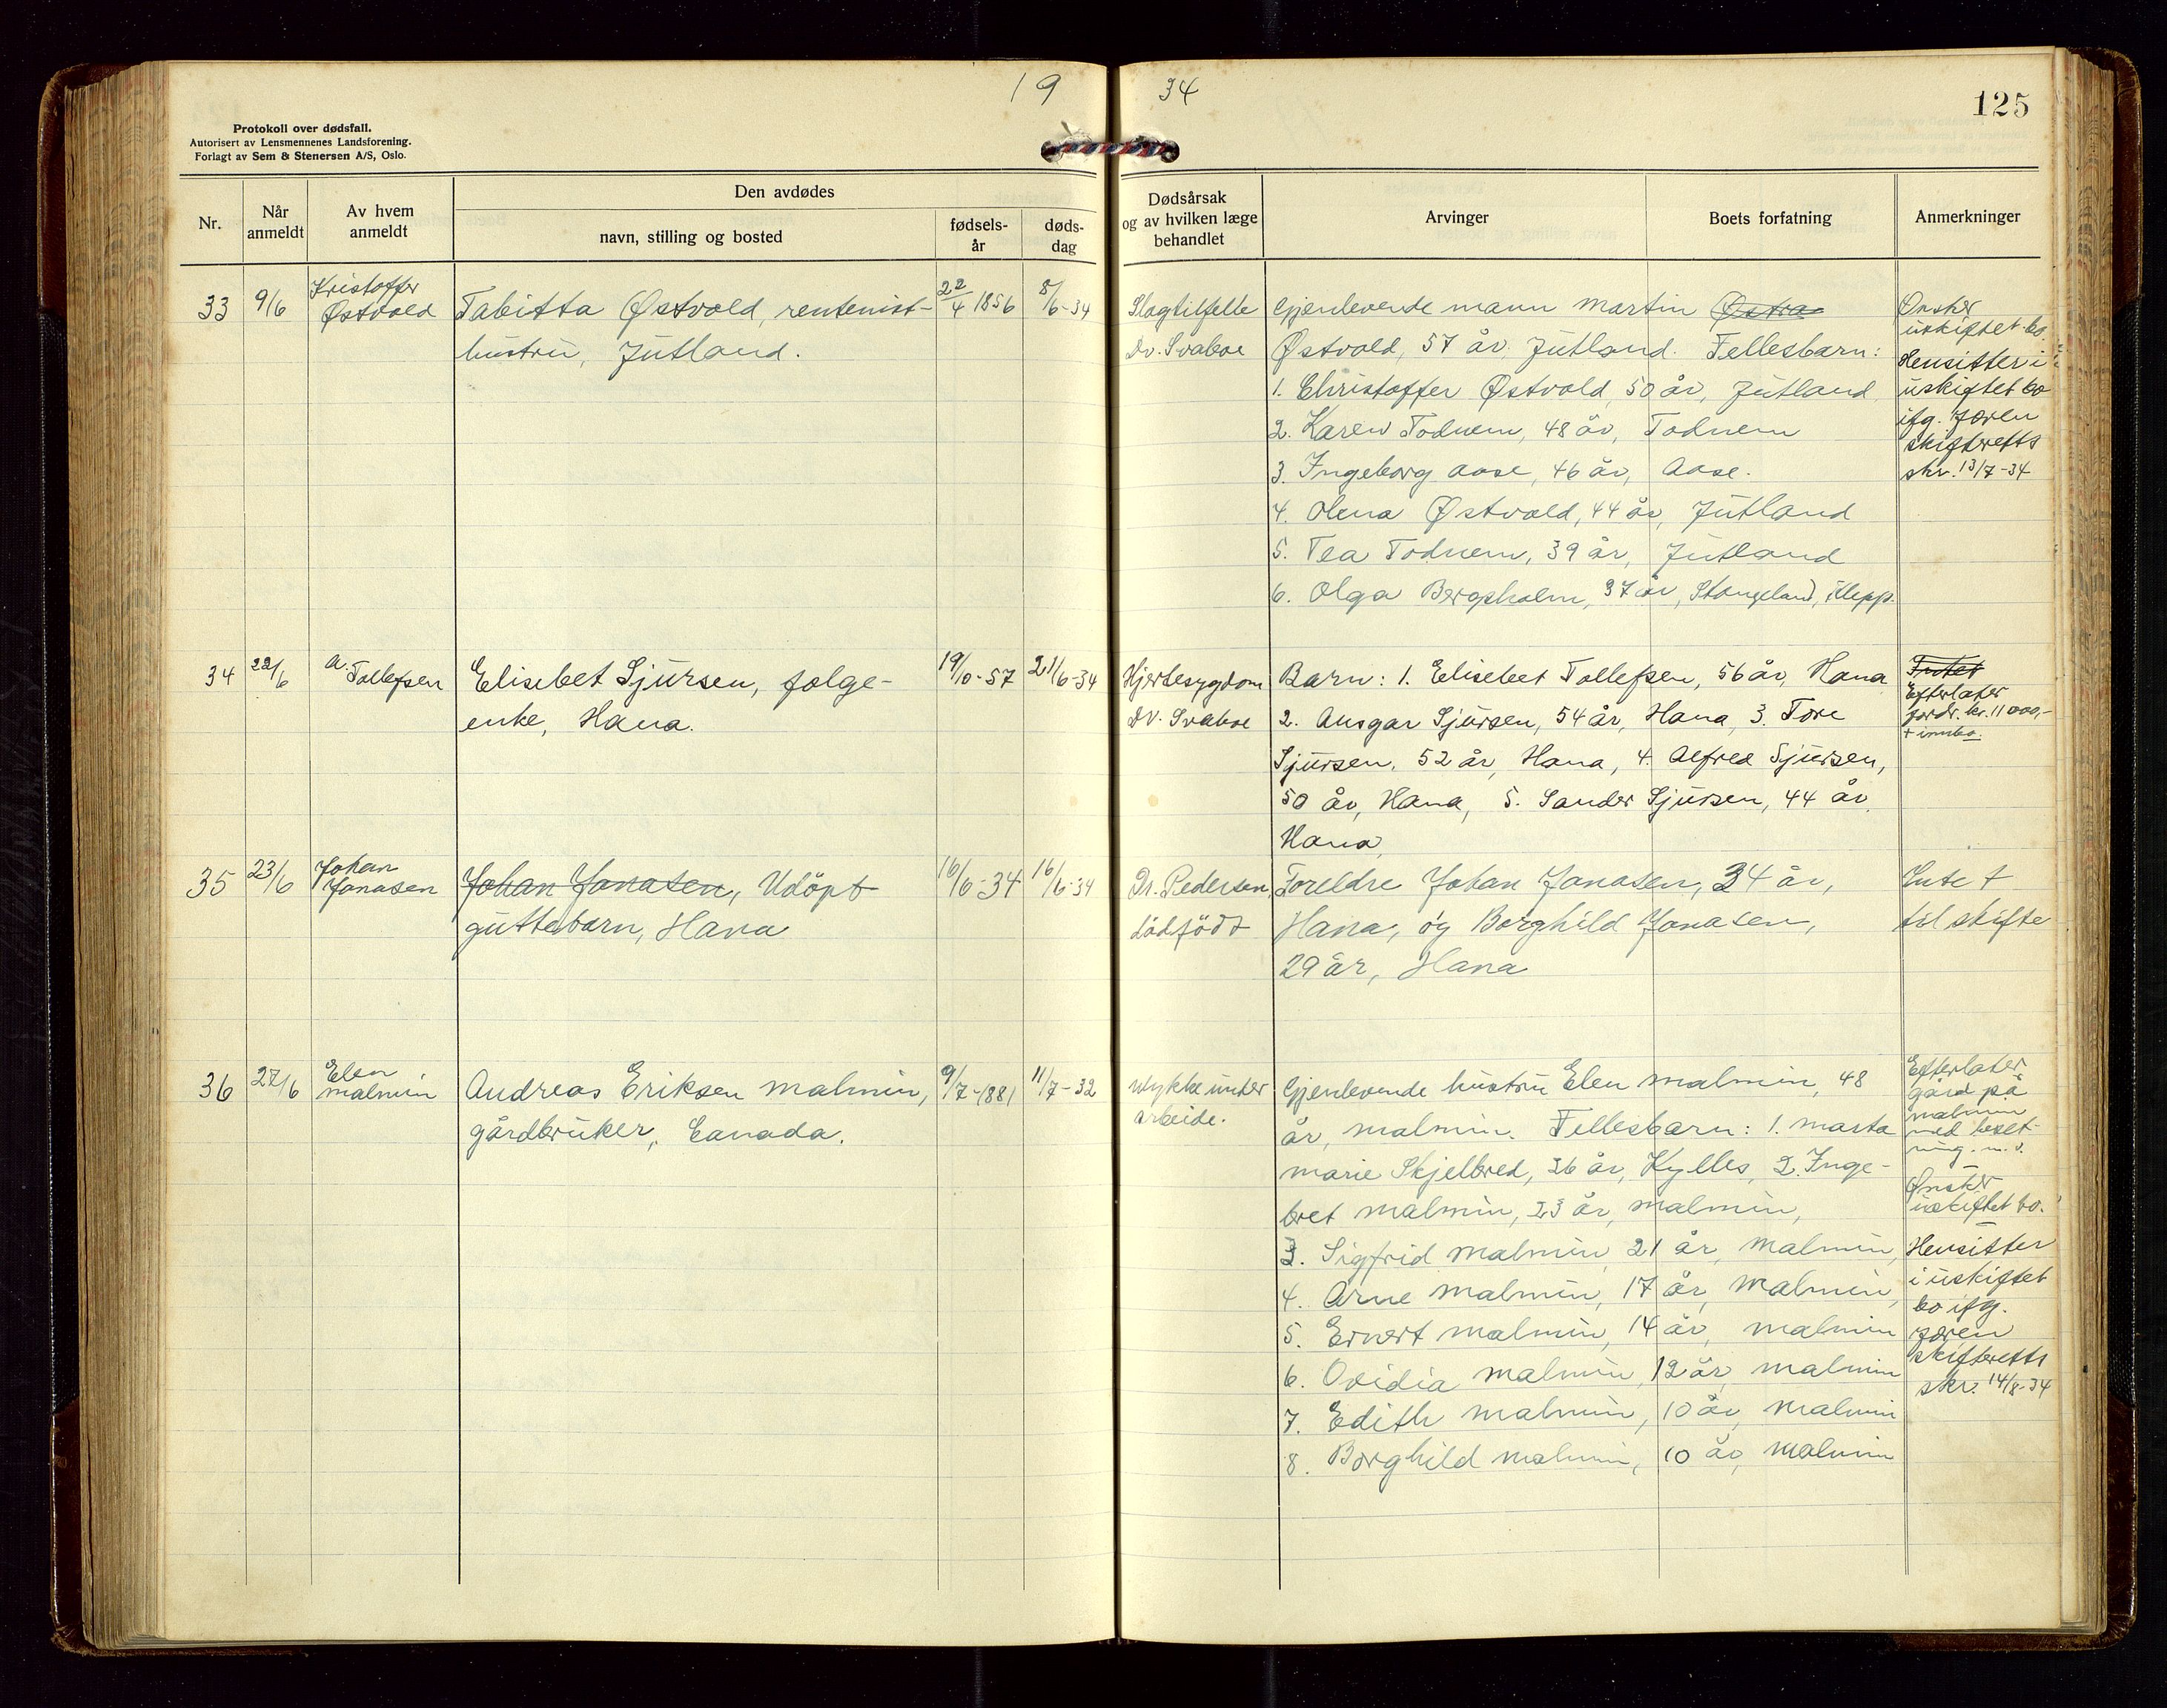 19 34
125
Protokoll over dødsfall.
Autorisert av Lensmennenes Landsforening.
Forlagt av Sem & Stenersen A/S, Oslo.
Nr.
Når anmeldt
Av hvem anmeldt
Den avdødes
navn, stilling og bosted
fødsels-
år
døds-
dag
Dødsårsak
og av hvilken læge
behandlet
Arvinger
Boets forfatning
Anmerkninger
33
9/6
Kristoffer
Østvold
Tabitta Østvold, rentenist-
hustru, Jutland.
22/4 1856
8/6-34
Slagtilfelle
Dr. Svaboe
Gjenlevende mann Martin Østva
Østvold, 57 år, Jutland. Fellesbarn:
1. Christoffer Østvold, 50 år, Jutland
2. Karen Todnem, 48 år, Todnem
3. Ingeborg Aase, 46 år, Aase.
4. Olena Østvold, 44 år, Jutland
5. Tea Todnem, 39 år, Jutland
6. Olga Bergsholm, 37 år, Stangeland, Klepp.
Ønsker
uskiftet bo.
Hensitter i
uskiftet bo
ifg. Jæren
skifteretts
skr. 13/7-34
34
22/6
A. Tollefsen
Elisebet Sjursen, følge-
enke, Hana.
19/10-57
21/6-34
Hjertesygdom
Dr. Svaboe
Barn: 1. Elisebet Tollefsen, 56 år, Hana
2. Ansgar Sjursen, 54 år, Hana, 3. Tore
Sjursen, 52 år, Hana, 4. Alfred Sjursen,
50 år, Hana, 5. Sander Sjursen, 44 år,
Hana,
Intet
Efterlater
fordr. kr. 11000,-
+ innbo.
35
23/6
Johan
Jonasen
Johan Jonasen, Udöpt
guttebarn, Hana
16/6-34
16/6-34
Dr. Pedersen,
dödfödt
Foreldre Johan Jonasen, 34 år,
Hana, og Borghild Jonasen,
29 år, Hana
Intet
til skifte
36
27/6
Elen
Malmin
Andreas Eriksen Malmin,
gårdbruker, Canada.
9/7-1881
11/7-32
Ulykke under
arbeide.
Gjenlevende hustru Elen Malmin, 48
år, Malmin. Fellesbarn: 1. Marta
Marie Skjelbred, 26 år, Kylles, 2. Inge-
bret Malmin, 23 år, Malmin,
3. Sigfrid Malmin, 21 år, Malmin,
4. Arne Malmin, 17 år, Malmin,
5. Ernert Malmin, 14 år, Malmin
6. Ovidia Malmin, 12 år, Malmin
7. Edith Malmin, 10 år, Malmin
8. Borghild Malmin, 10 år, Malmin
Efterlater
gård på
Malmin
med beset-
ning. m. v.
Ønsker
uskiftet bo.
Hensitter
i uskiftet
bo ifg.
Jæren
skifteretts
skr. 14/8-34